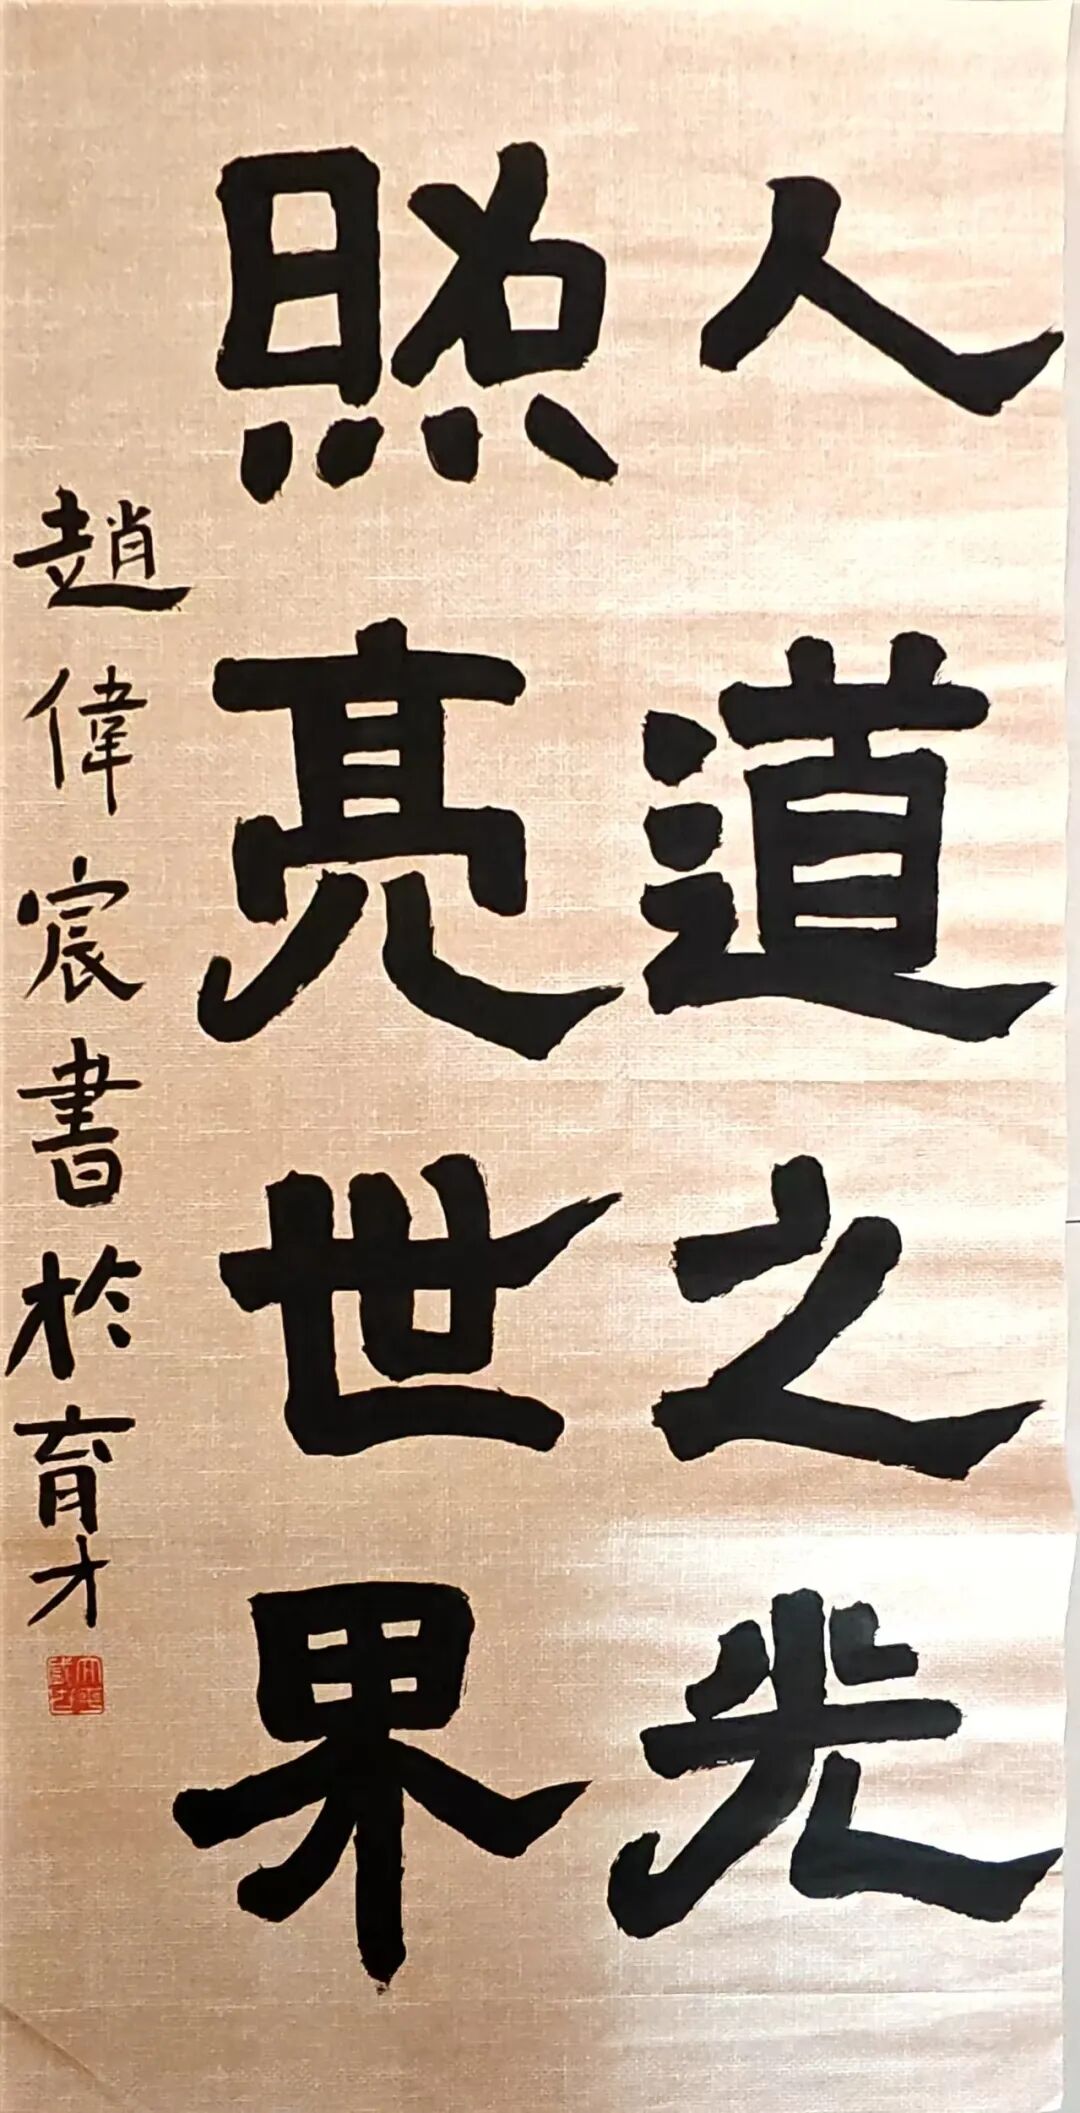 人道之光
照亮世界
趙偉宸書於育才